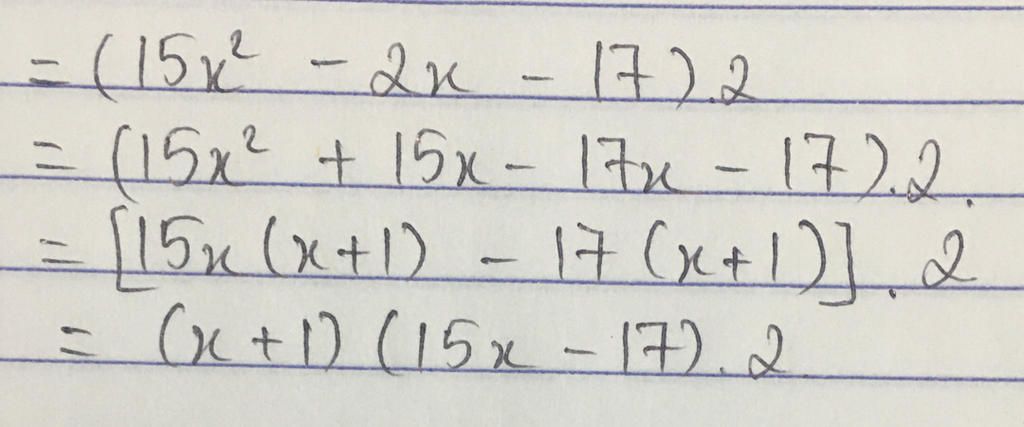 = (15x² - 2x - 17).2
= (15x² + 15x - 17x - 17).2.
= [15x (x+1) - 17 (x+1)]. 2
= (x+1) (15x - 17). 2